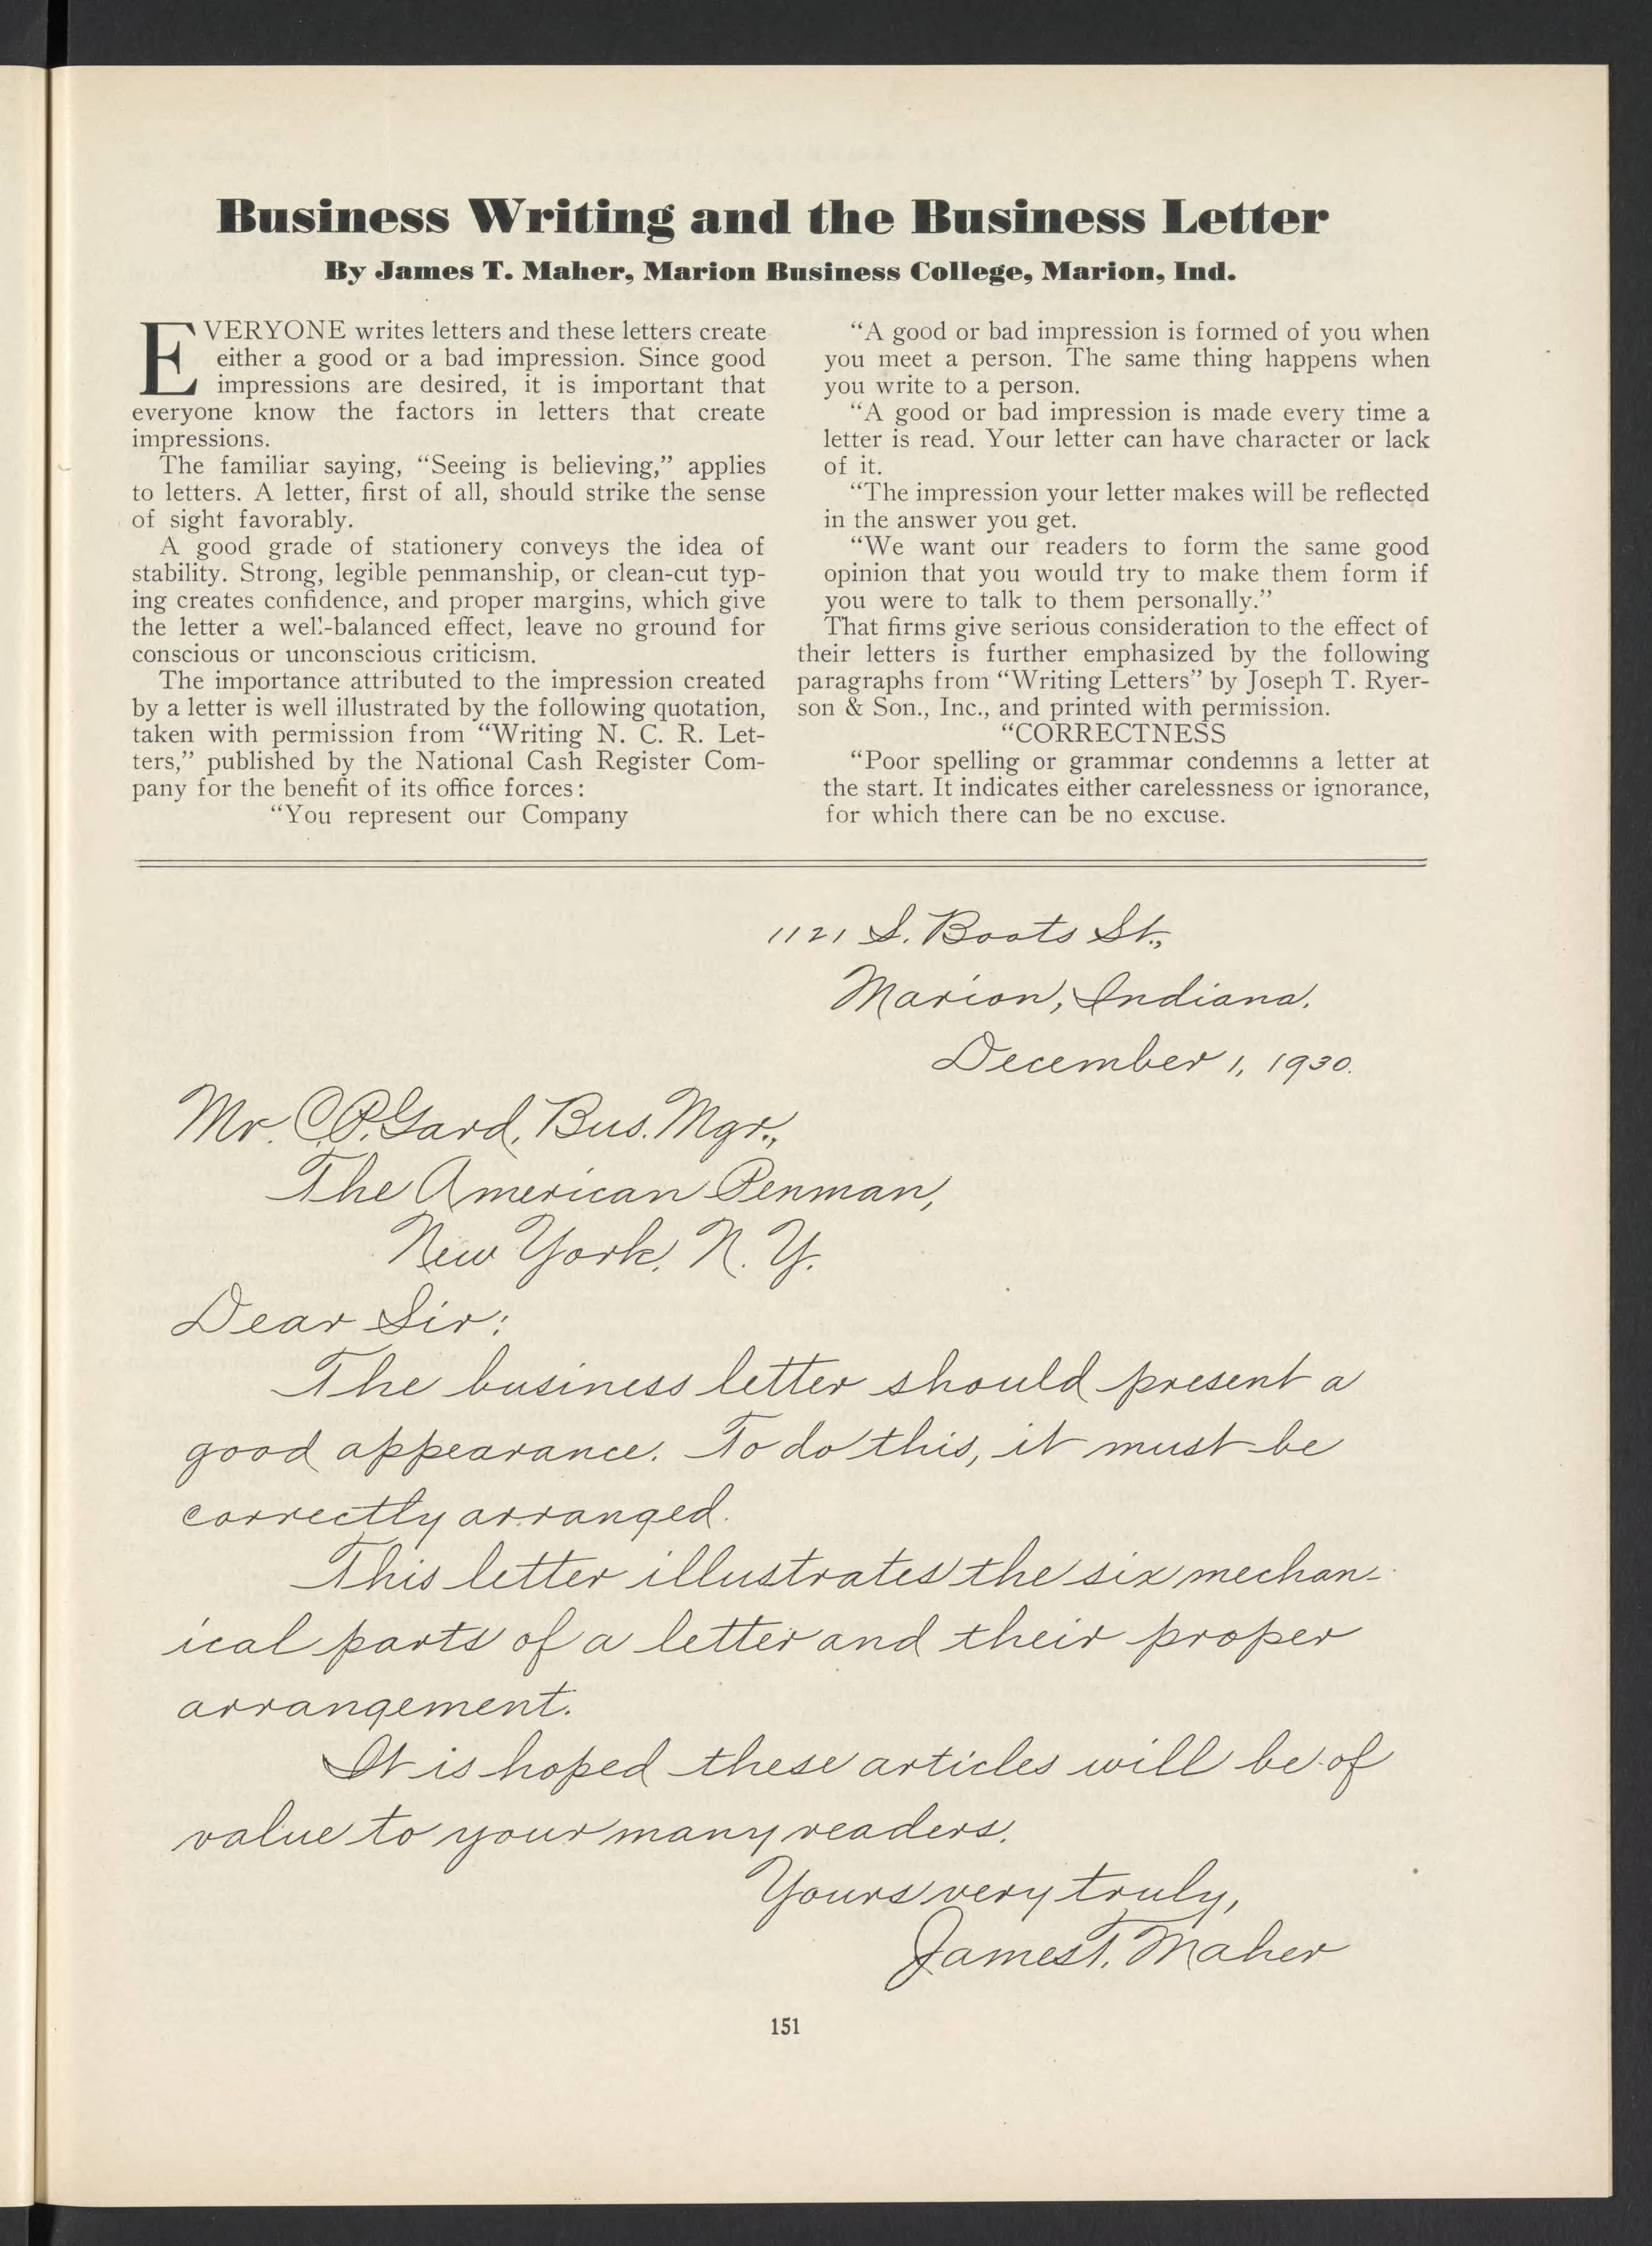 Business Writing and the Business Letter
By James T. Maher, Marion Business College, Marion, Ind.
EVERYONE writes letters and these letters create
either a good or a bad impression. Since good
impressions are desired, it is important that
everyone know the factors in letters that create
impressions.
The familiar saying, “Seeing is believing,” applies
to letters. A letter, first of all, should strike the sense
of sight favorably.
A good grade of stationery conveys the idea of
stability. Strong, legible penmanship, or clean-cut typ-
ing creates confidence, and proper margins, which give
the letter a well-balanced effect, leave no ground for
conscious or unconscious criticism.
The importance attributed to the impression created
by a letter is well illustrated by the following quotation,
taken with permission from “Writing N. C. R. Let-
ters,” published by the National Cash Register Com-
pany for the benefit of its office forces:
“You represent our Company
“A good or bad impression is formed of you when
you meet a person. The same thing happens when
you write to a person.
“A good or bad impression is made every time a
letter is read. Your letter can have character or lack
of it.
“The impression your letter makes will be reflected
in the answer you get.
“We want our readers to form the same good
opinion that you would try to make them form if
you were to talk to them personally.”
That firms give serious consideration to the effect of
their letters is further emphasized by the following
paragraphs from “Writing Letters” by Joseph T. Ryer-
son & Son., Inc., and printed with permission.
“CORRECTNESS
“Poor spelling or grammar condemns a letter at
the start. It indicates either carelessness or ignorance,
for which there can be no excuse.
1121 S. Boots St.,
Marion, Indiana.
December 1, 1930.
Mr. C.P. Gard, Bus. Mgr.,
The American Penman,
New York, N. Y.
Dear Sir:
The business letter should present a
good appearance. To do this, it must be
correctly arranged.
This letter illustrates the six mechan-
ical parts of a letter and their proper
arrangement.
It is hoped these articles will be of
value to your many readers.
Yours very truly,
James T. Maher
151